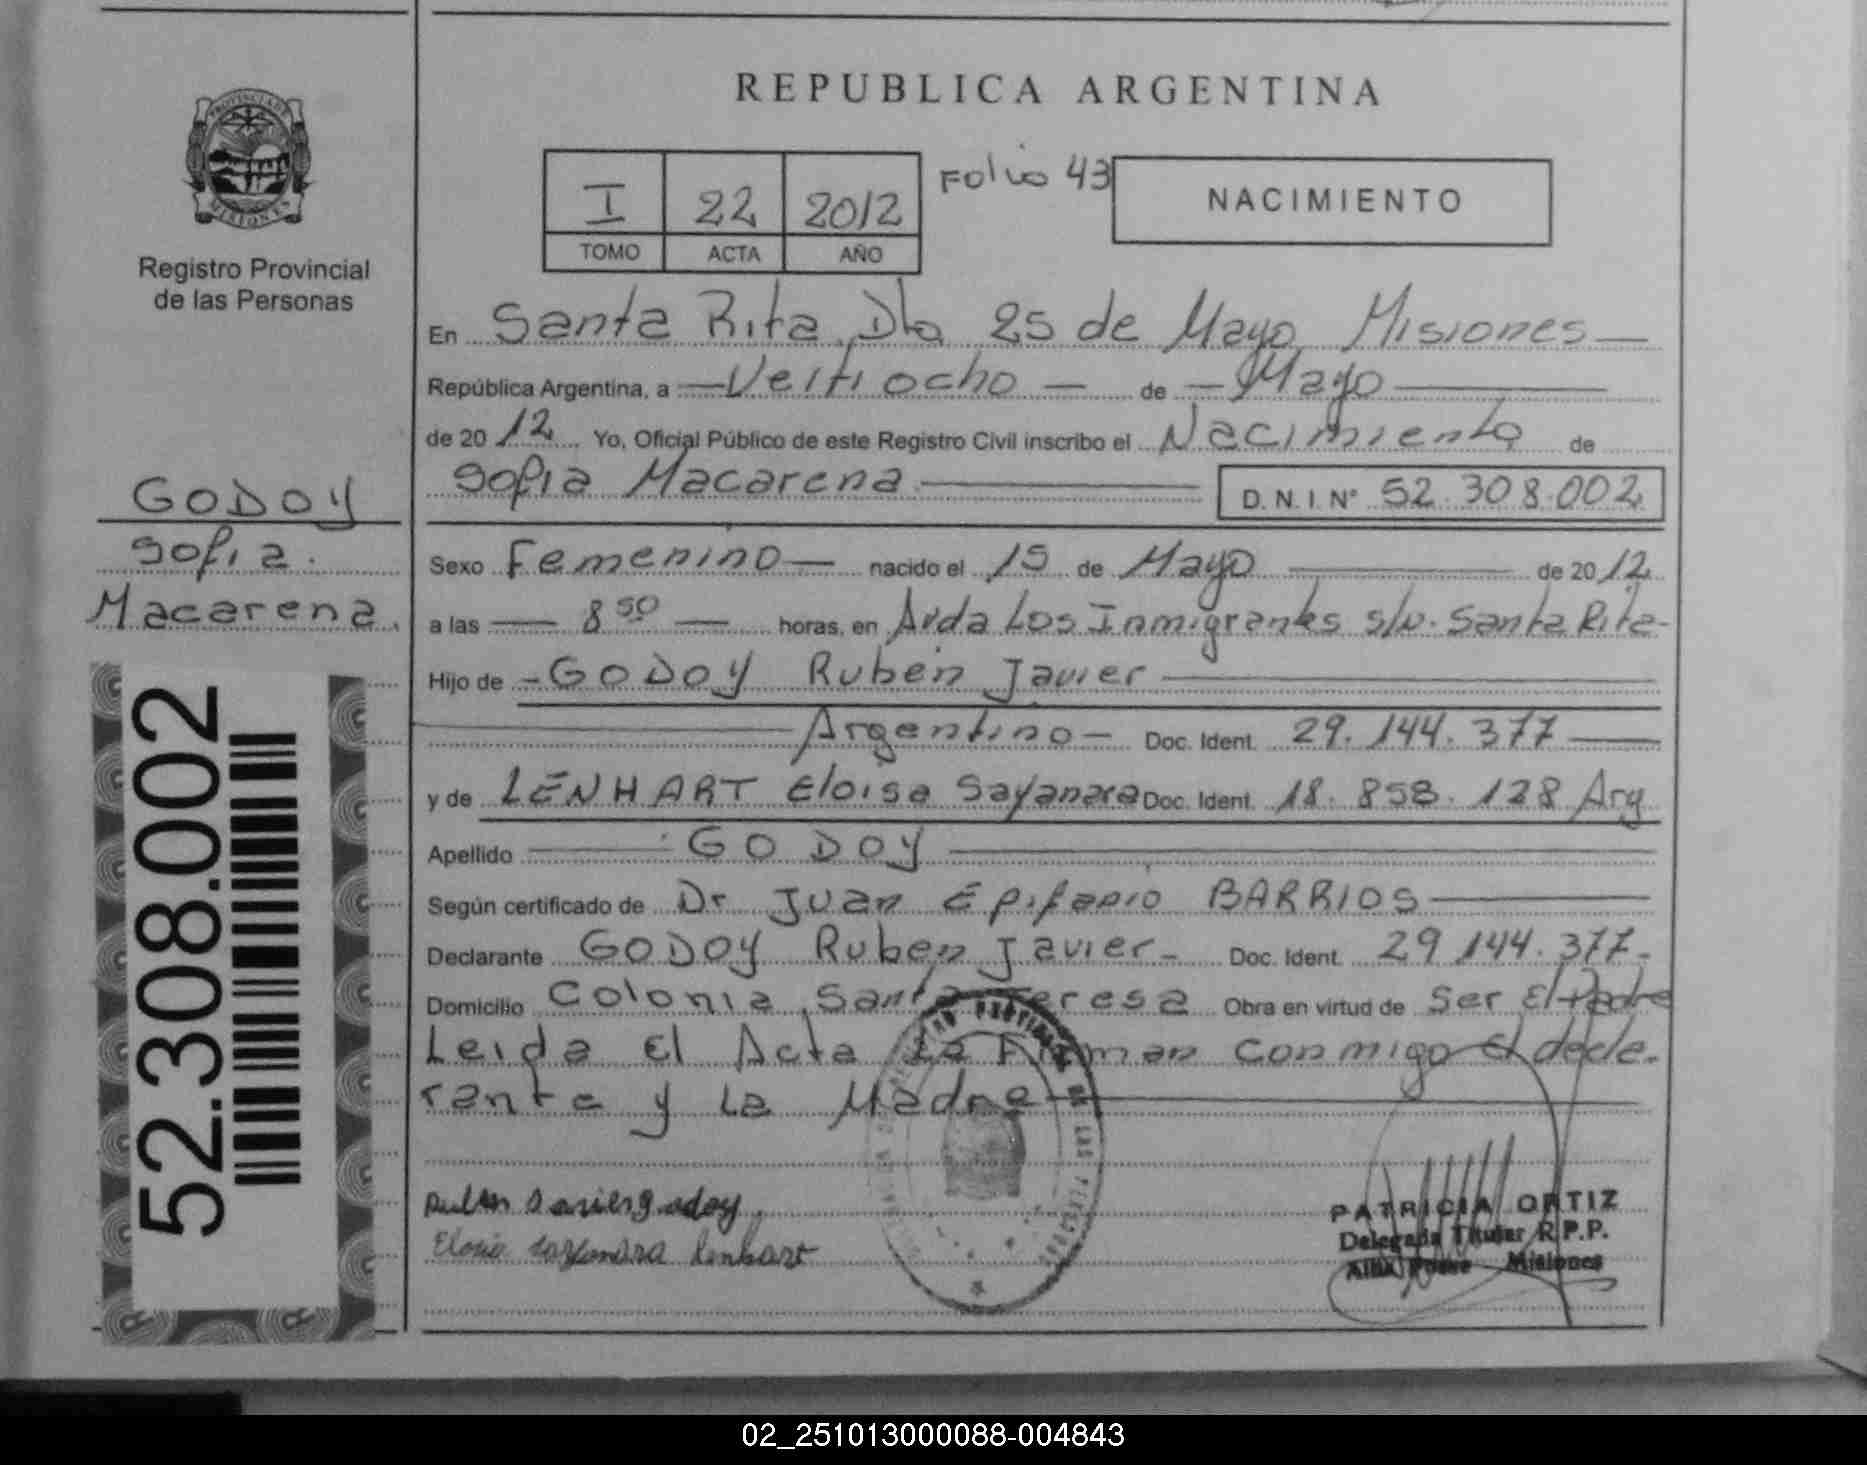 REPUBLICA ARGENTINA
PROVINCIA DE
MISIONES
Registro Provincial
de las Personas
I 22 2012
TOMO ACTA AÑO
Folio 43
NACIMIENTO
En Santa Rita Dto 25 de Mayo Misiones
República Argentina, a Veitiocho de Mayo
de 2012 Yo, Oficial Público de este Registro Civil inscribo el Nacimiento de
Sofia Macarena D.N.I. N° 52.308.002
GODOY
Sofia
Macarena
Sexo Femenino nacido el 15 de Mayo de 2012
a las 8 50 horas, en Avda Los Inmigrantes s/n. Santa Rita-
Hijo de - GODOY Ruben Javier
Argentino - Doc. Ident. 29.144.377
y de LENHART Eloisa Sayanara Doc. Ident. 18.858.128 Arg
Apellido GODOY
Según certificado de Dr Juan Epifanio BARRIOS
Declarante GODOY Ruben Javier - Doc. Ident. 29.144.377-
Domicilio Colonia Santa Teresa Obra en virtud de Ser El Padre
Leida El Acta La Firman conmigo El decla-
rante y La Madre
52.308.002
PATRICIA ORTIZ
Delegada Titular R.P.P.
Alba Posse Misiones
02_251013000088-004843